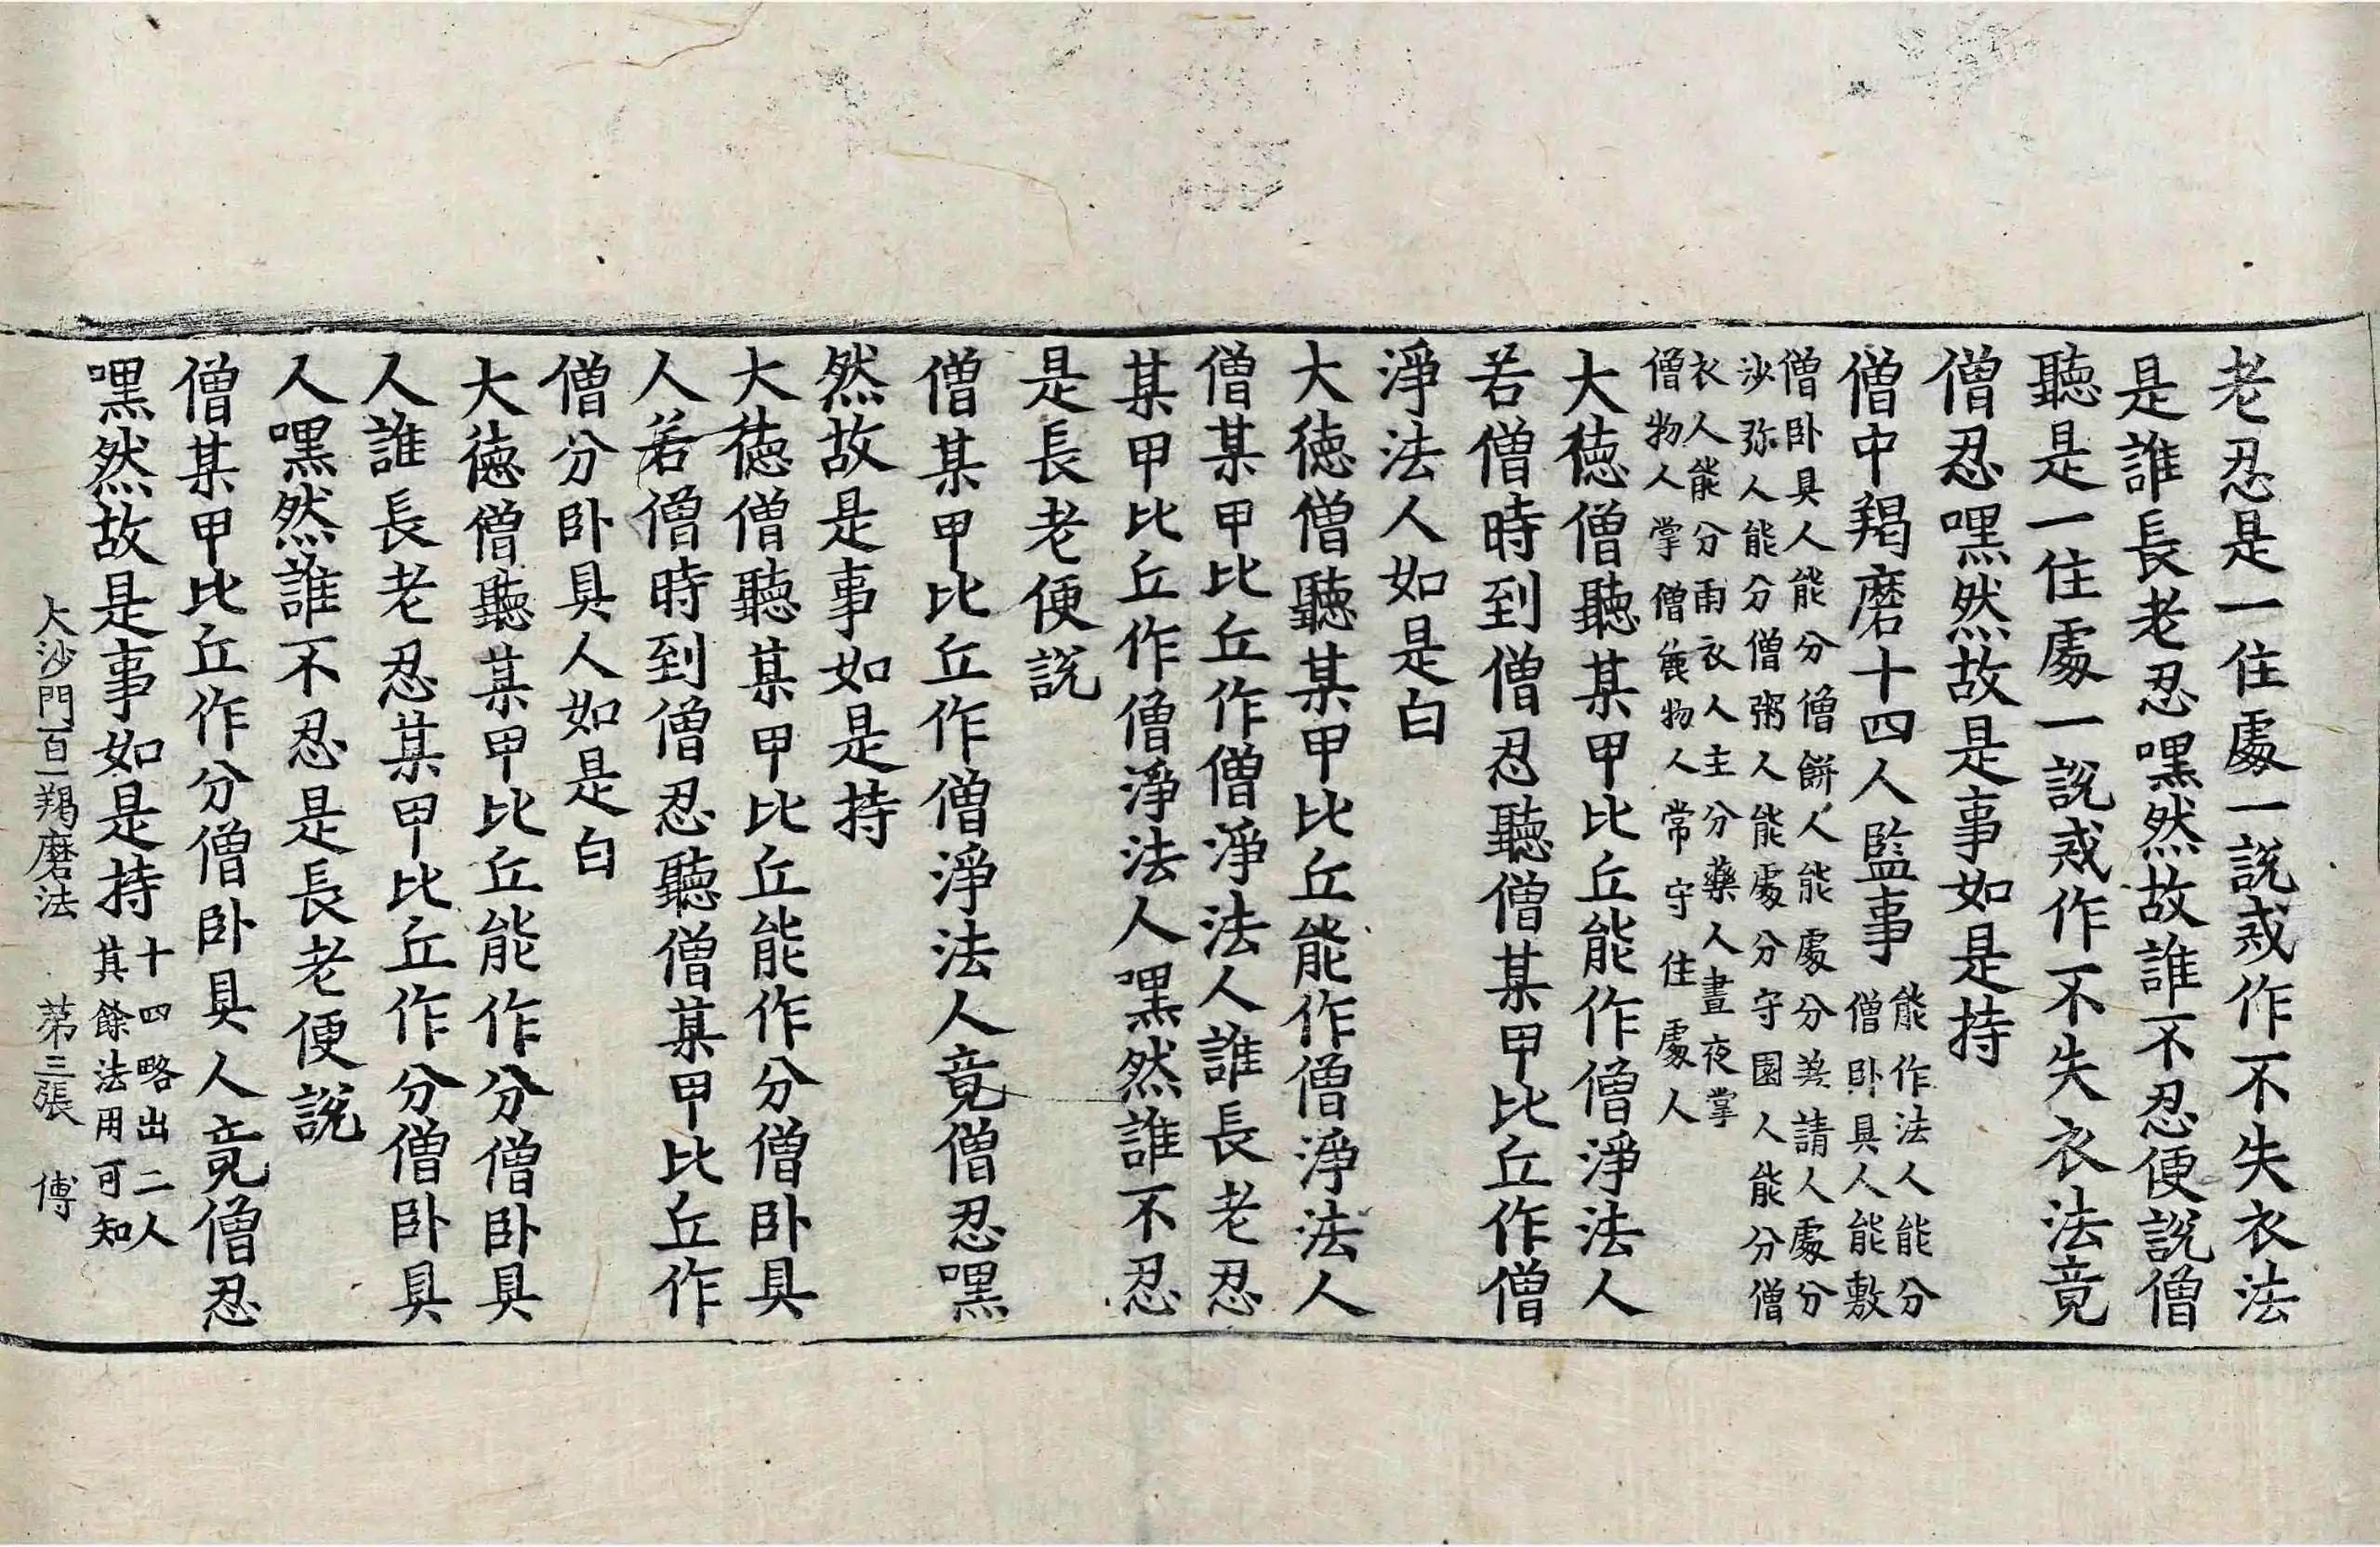 老忍是一住處一說戒作不失衣法
是誰長老忍嘿然故誰不忍便說僧
聽是一住處一說戒作不失衣法竟
僧忍嘿然故是事如是持
僧中羯磨十四人監事
能作法人能分
僧卧具人能敷
僧卧具人能分僧餅人能處分羙請人處分
沙弥人能分僧粥人能處分守園人能分僧
衣人能分雨衣人主分藥人晝夜掌
僧物人掌僧麁物人常守住處人
大徳僧聽某甲比丘能作僧淨法人
若僧時到僧忍聽僧某甲比丘作僧
淨法人如是白
大徳僧聽某甲比丘能作僧淨法人
僧某甲比丘作僧淨法人誰長老忍
某甲比丘作僧淨法人嘿然誰不忍
是長老便說
僧某甲比丘作僧淨法人竟僧忍嘿
然故是事如是持
大徳僧聽某甲比丘能作分僧卧具
人若僧時到僧忍聽僧某甲比丘作
僧分卧具人如是白
大徳僧聽某甲比丘能作分僧卧具
人誰長老忍某甲比丘作分僧卧具
人嘿然誰不忍是長老便說
僧某甲比丘作分僧卧具人竟僧忍
嘿然故是事如是持
十四略出二人
其餘法用可知
大沙門百一羯磨法 第三張 傅